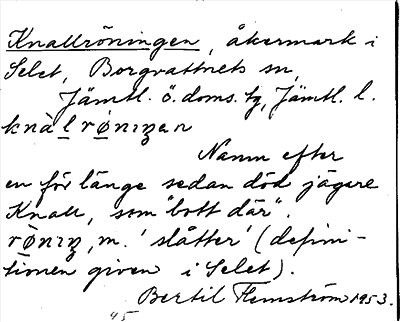 Knallröningen, åkermark i
Selet, Borgvattnets sn,
Jämtl. ö. doms. tg, Jämtl. l.
knàl rø̀niŋen
Namn efter
en för länge sedan död jägare
Knall, som "bott där".
rø̀niŋ, m. 'slåtter' (defini-
tionen given i Selet).
Bertil Flemström 1953.
45